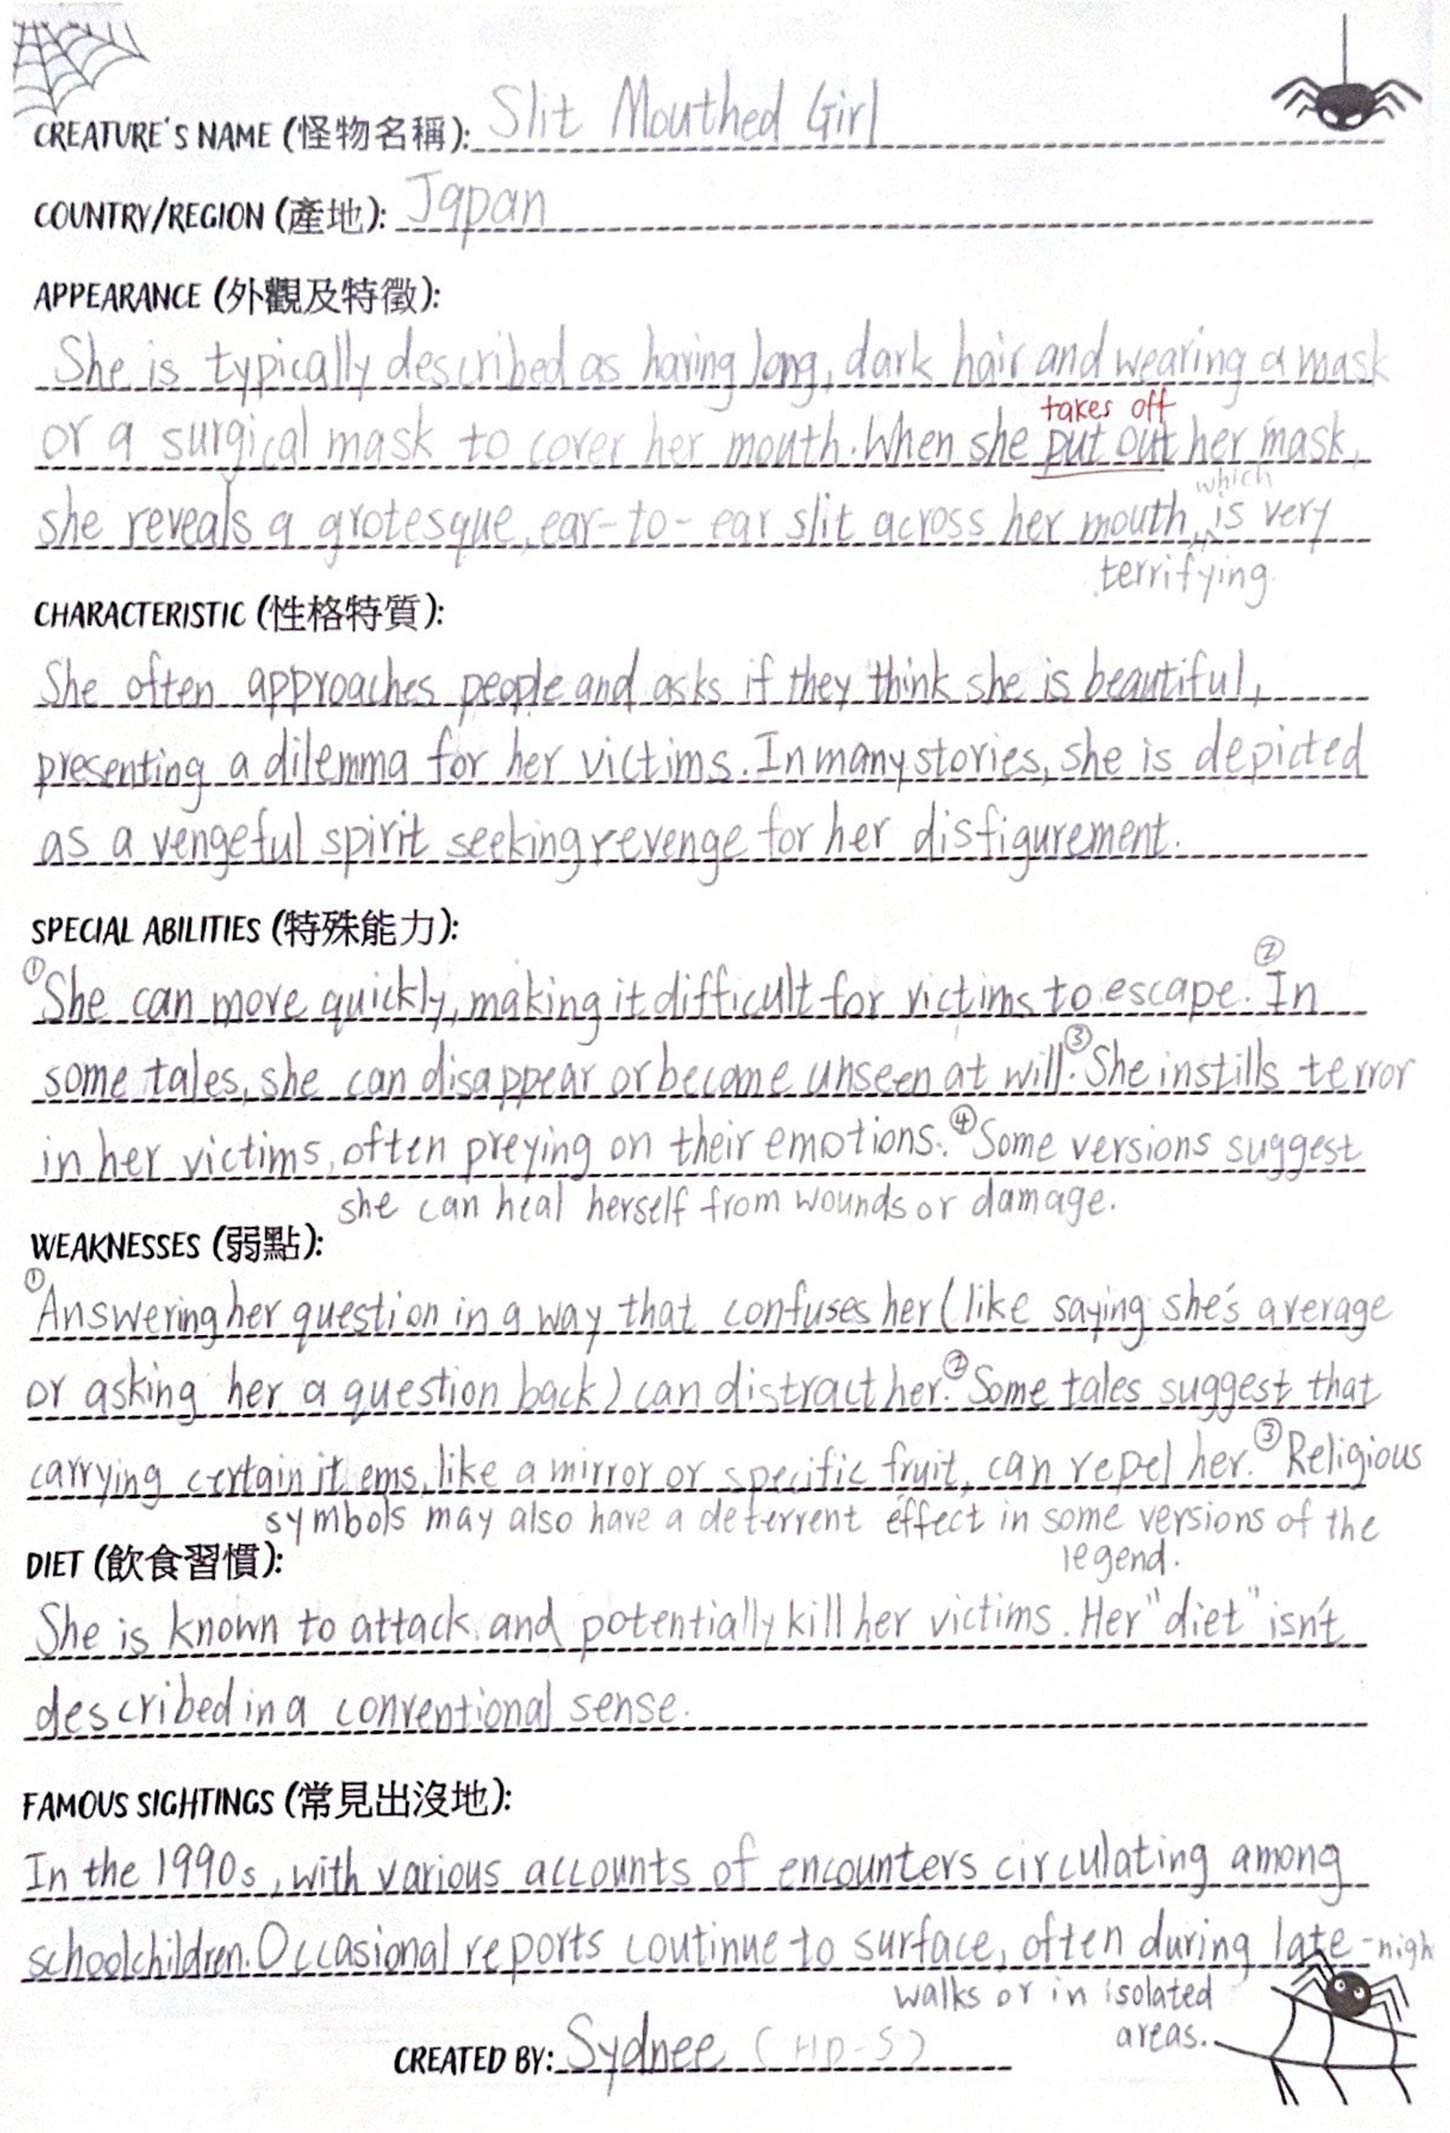 CREATURE'S NAME (怪物名稱): Slit Mouthed Girl
COUNTRY/REGION (產地): Japan
APPEARANCE (外觀及特徵):
She is typically described as having long, dark hair and wearing a mask
takes off
or a surgical mask to cover her mouth. When she put out her mask,
which
she reveals a grotesque, ear-to-ear slit across her mouth, is very
terrifying.
CHARACTERISTIC (性格特質):
She often approaches people and asks if they think she is beautiful,
presenting a dilemma for her victims. In many stories, she is depicted
as a vengeful spirit seeking revenge for her disfigurement.
SPECIAL ABILITIES (特殊能力):
①She can move quickly, making it difficult for victims to escape. ②In
some tales, she can disappear or become unseen at will. ③She instills terror
in her victims, often preying on their emotions. ④Some versions suggest
she can heal herself from wounds or damage.
WEAKNESSES (弱點):
①Answering her question in a way that confuses her (like saying she's average
or asking her a question back) can distract her. ②Some tales suggest that
carrying certain items, like a mirror or specific fruit, can repel her. ③Religious
symbols may also have a deterrent effect in some versions of the
legend.
DIET (飲食習慣):
She is known to attack and potentially kill her victims. Her "diet" isn't
described in a conventional sense.
FAMOUS SIGHTINGS (常見出沒地):
In the 1990s, with various accounts of encounters circulating among
schoolchildren. Occasional reports coutinue to surface, often during late-nigh
walks or in isolated
areas.
CREATED BY: Sydnee (HD-S)